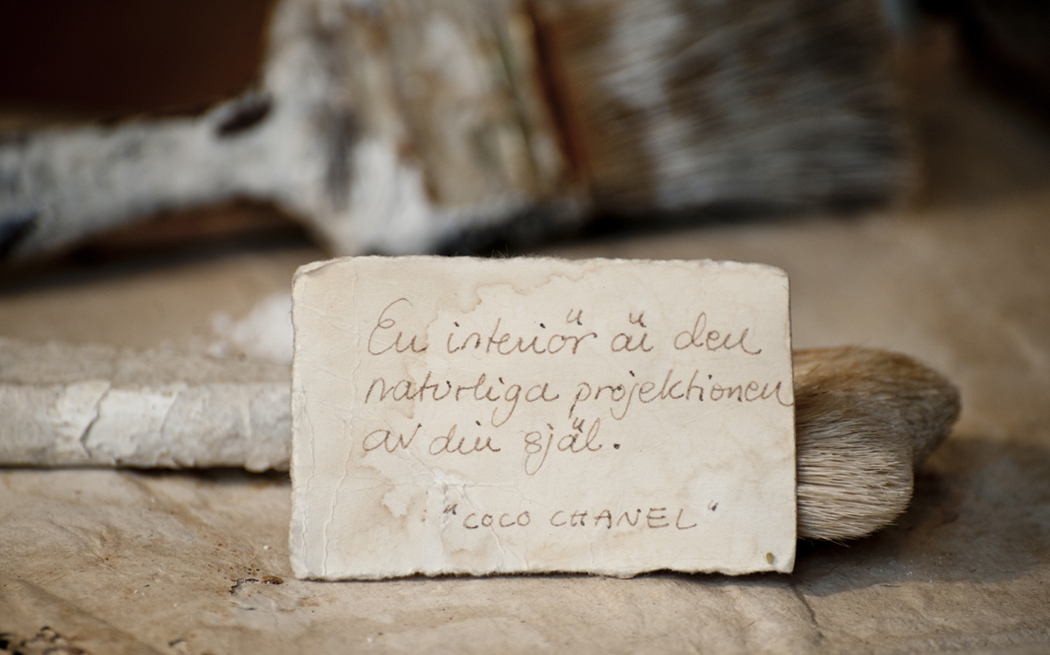 En interiör är den
naturliga projektionen
av din själ.
"COCO CHANEL"